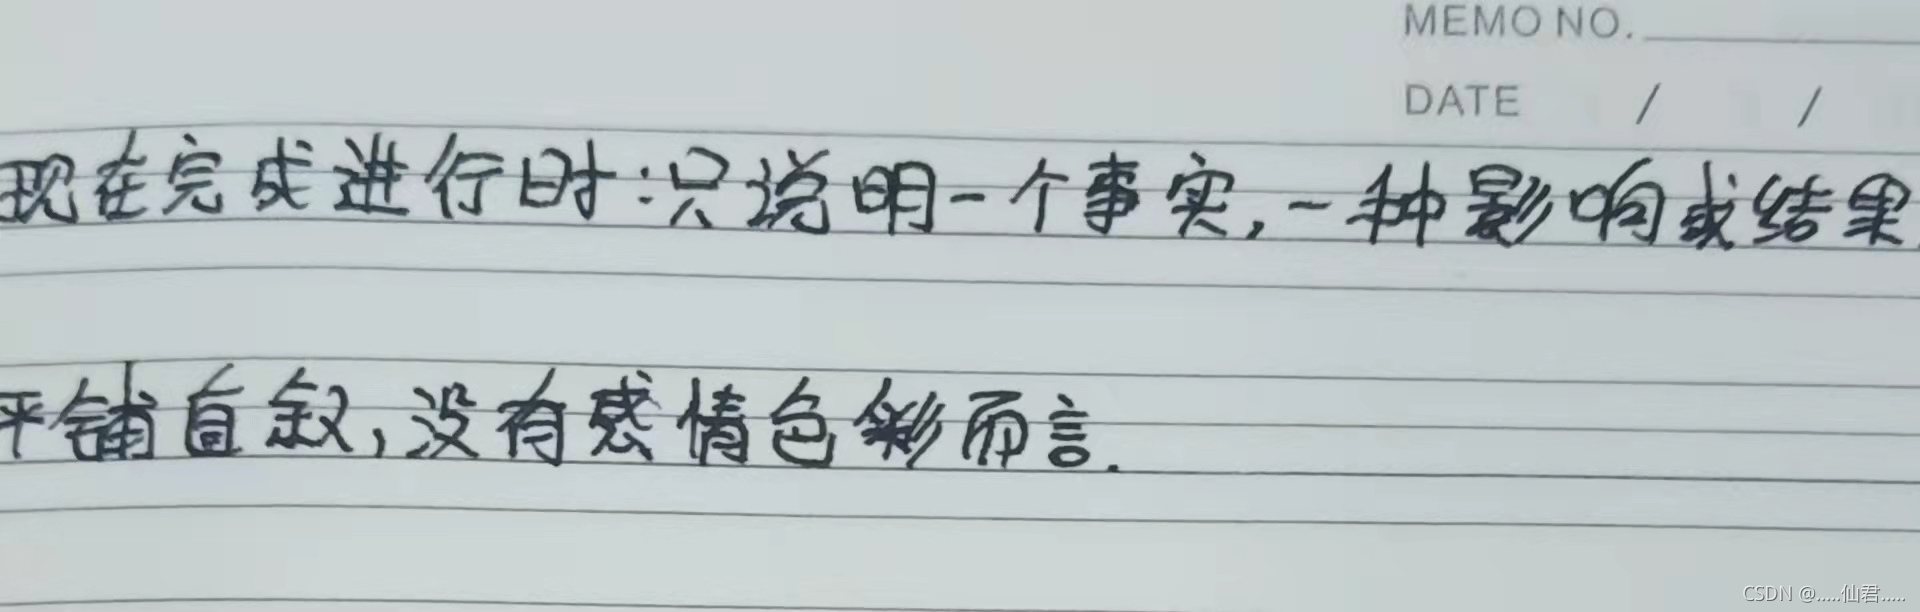 MEMO NO.
DATE / /
现在完成进行时:只说明一个事实,一种影响或结果.
平铺直叙,没有感情色彩而言.
CSDN @.....仙君.....